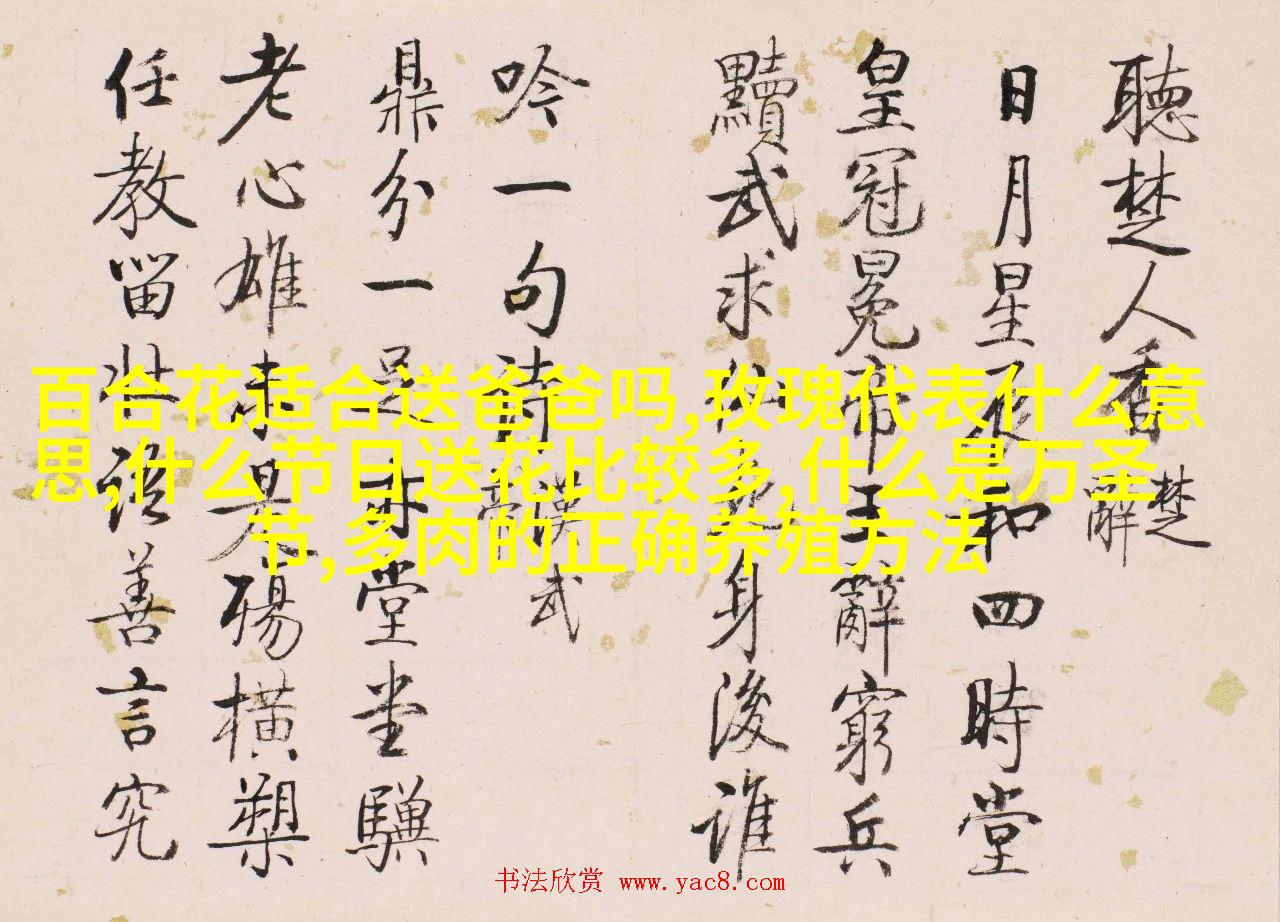 聽楚人香
楚
辭
日月星辰和四時堂
皇冠冕帝王辭窮兵
黷武求仙身後誰
吟一句詩
漢武
鼎分一足堂堂驥
老心雄未殤橫槊
任教留壯語善言究
百合花适合送爸爸吗,玫瑰代表什么意
思,什么节日送花比较多,什么是万圣
节,多肉的正确养殖方法
书法欣赏 www.yac8.com